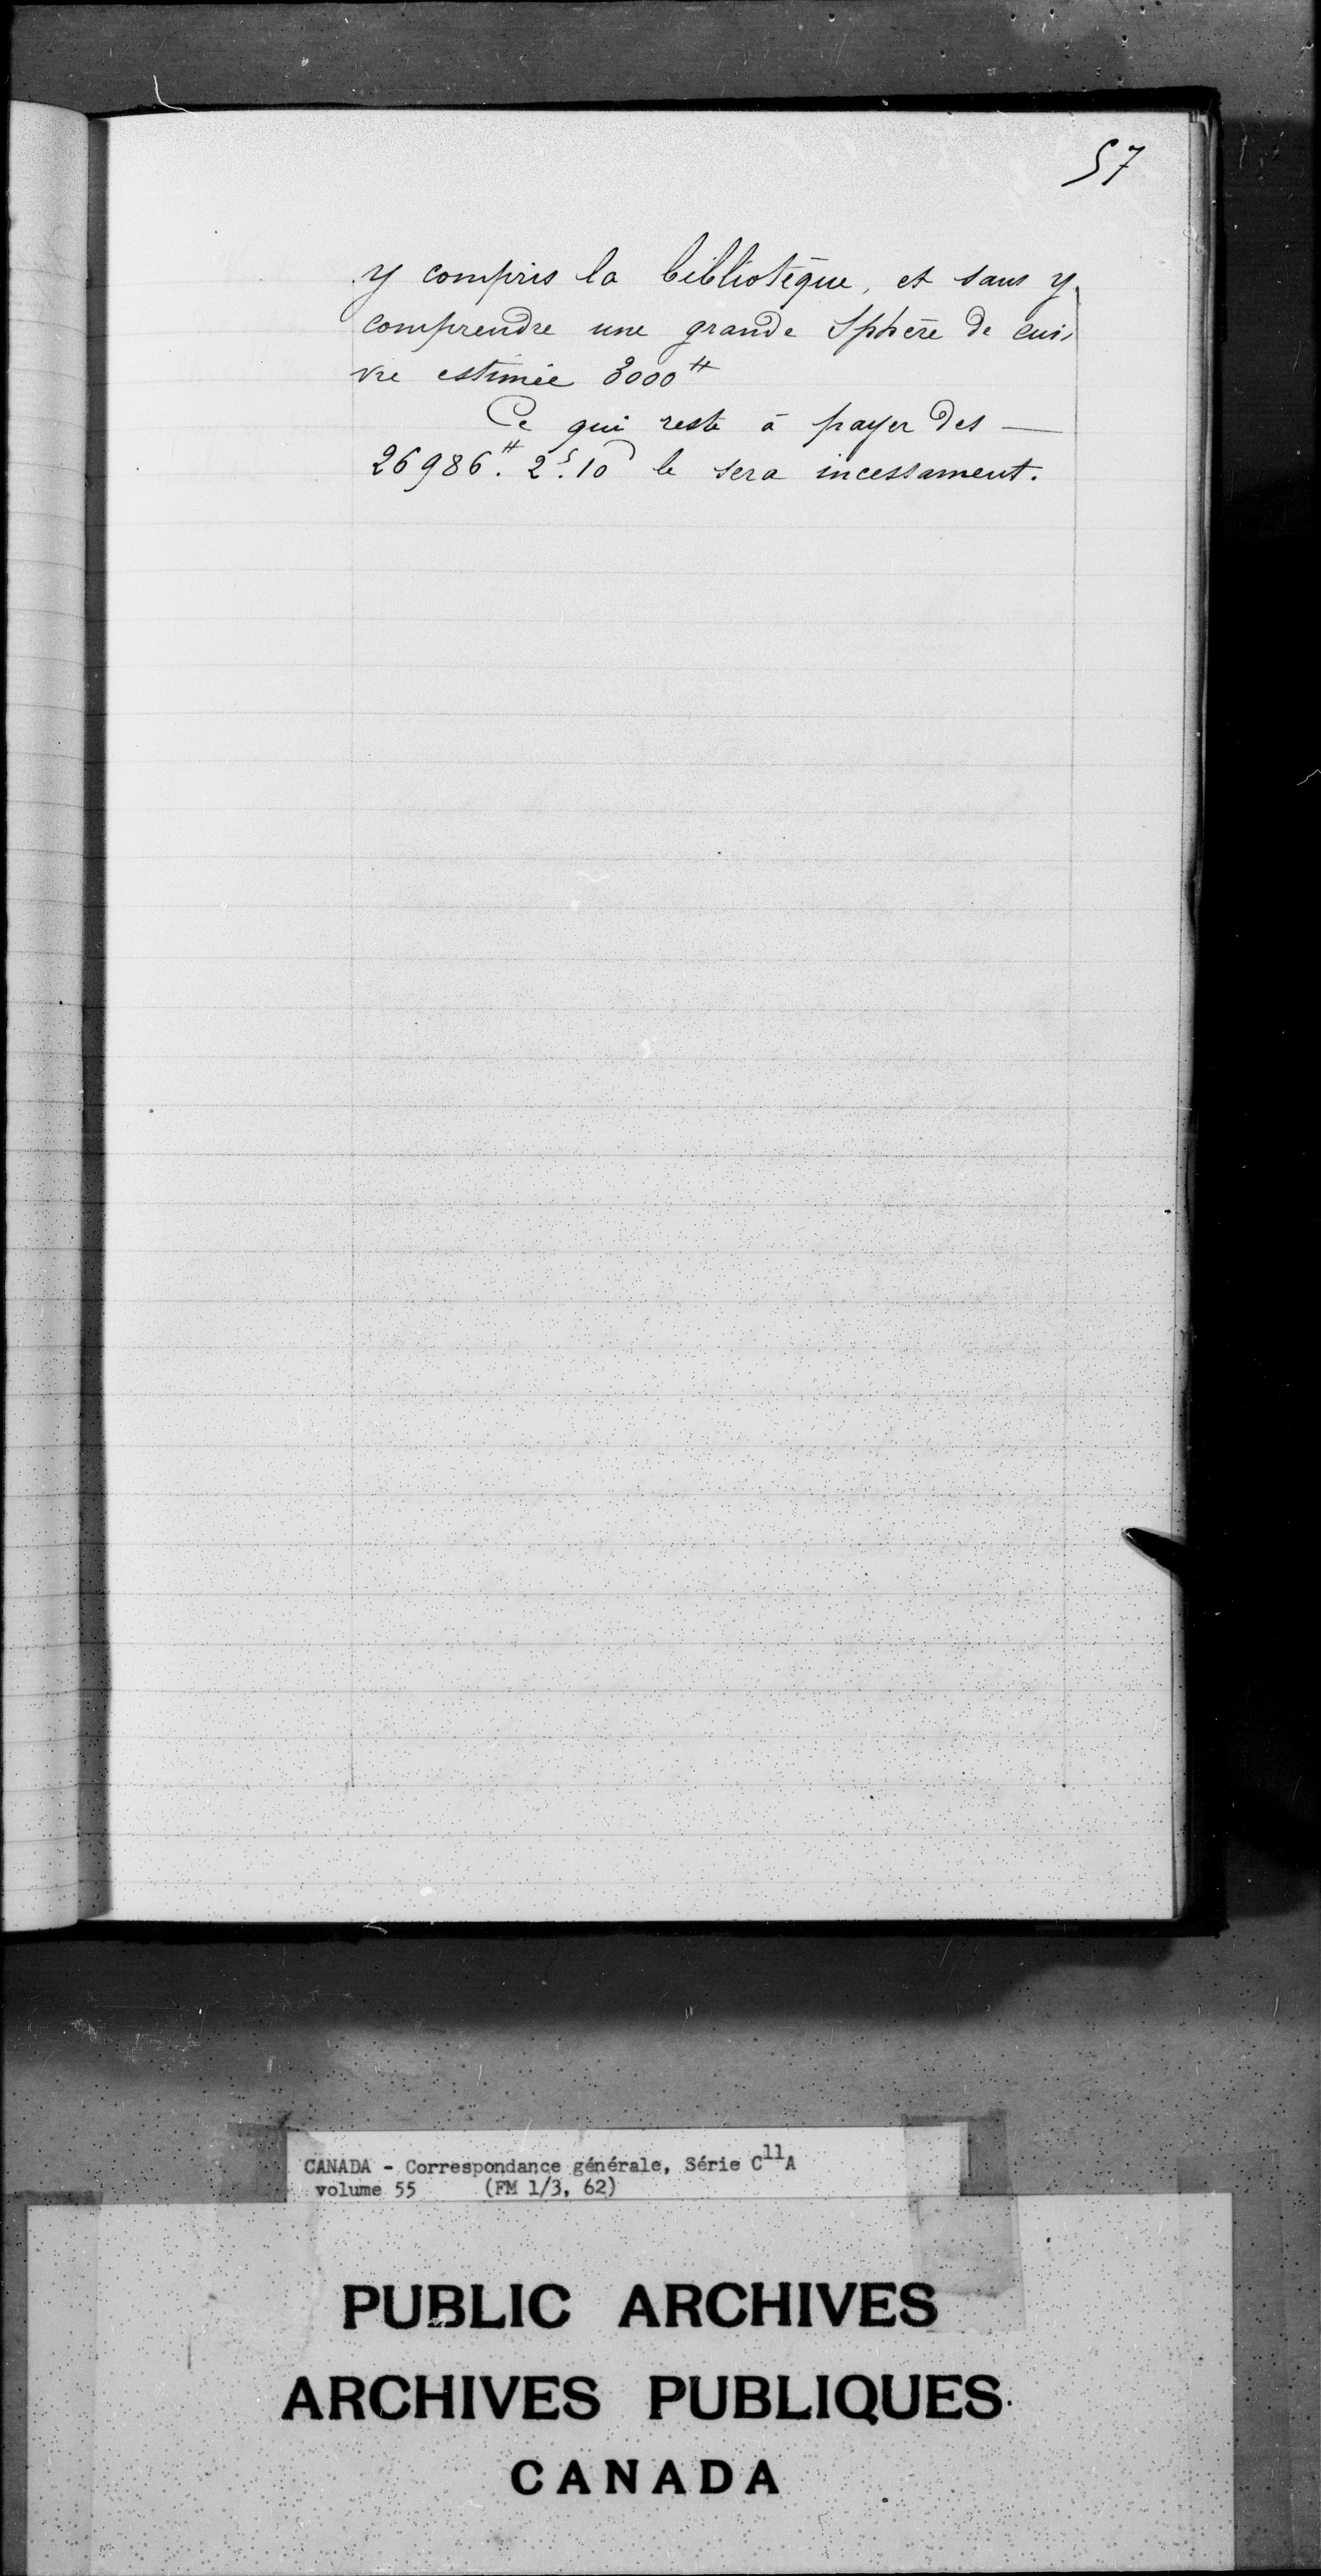 57
y compris la bibliotèque, et sans y
comprendre une grande Sphère de cui-
vre estimée 3000 ₶
Ce qui reste à payer des —
26986.₶ 2.s 10 d le sera incessament.
CANADA - Correspondance générale, Série C11A
volume 55 (FM 1/3, 62)
PUBLIC ARCHIVES
ARCHIVES PUBLIQUES
CANADA